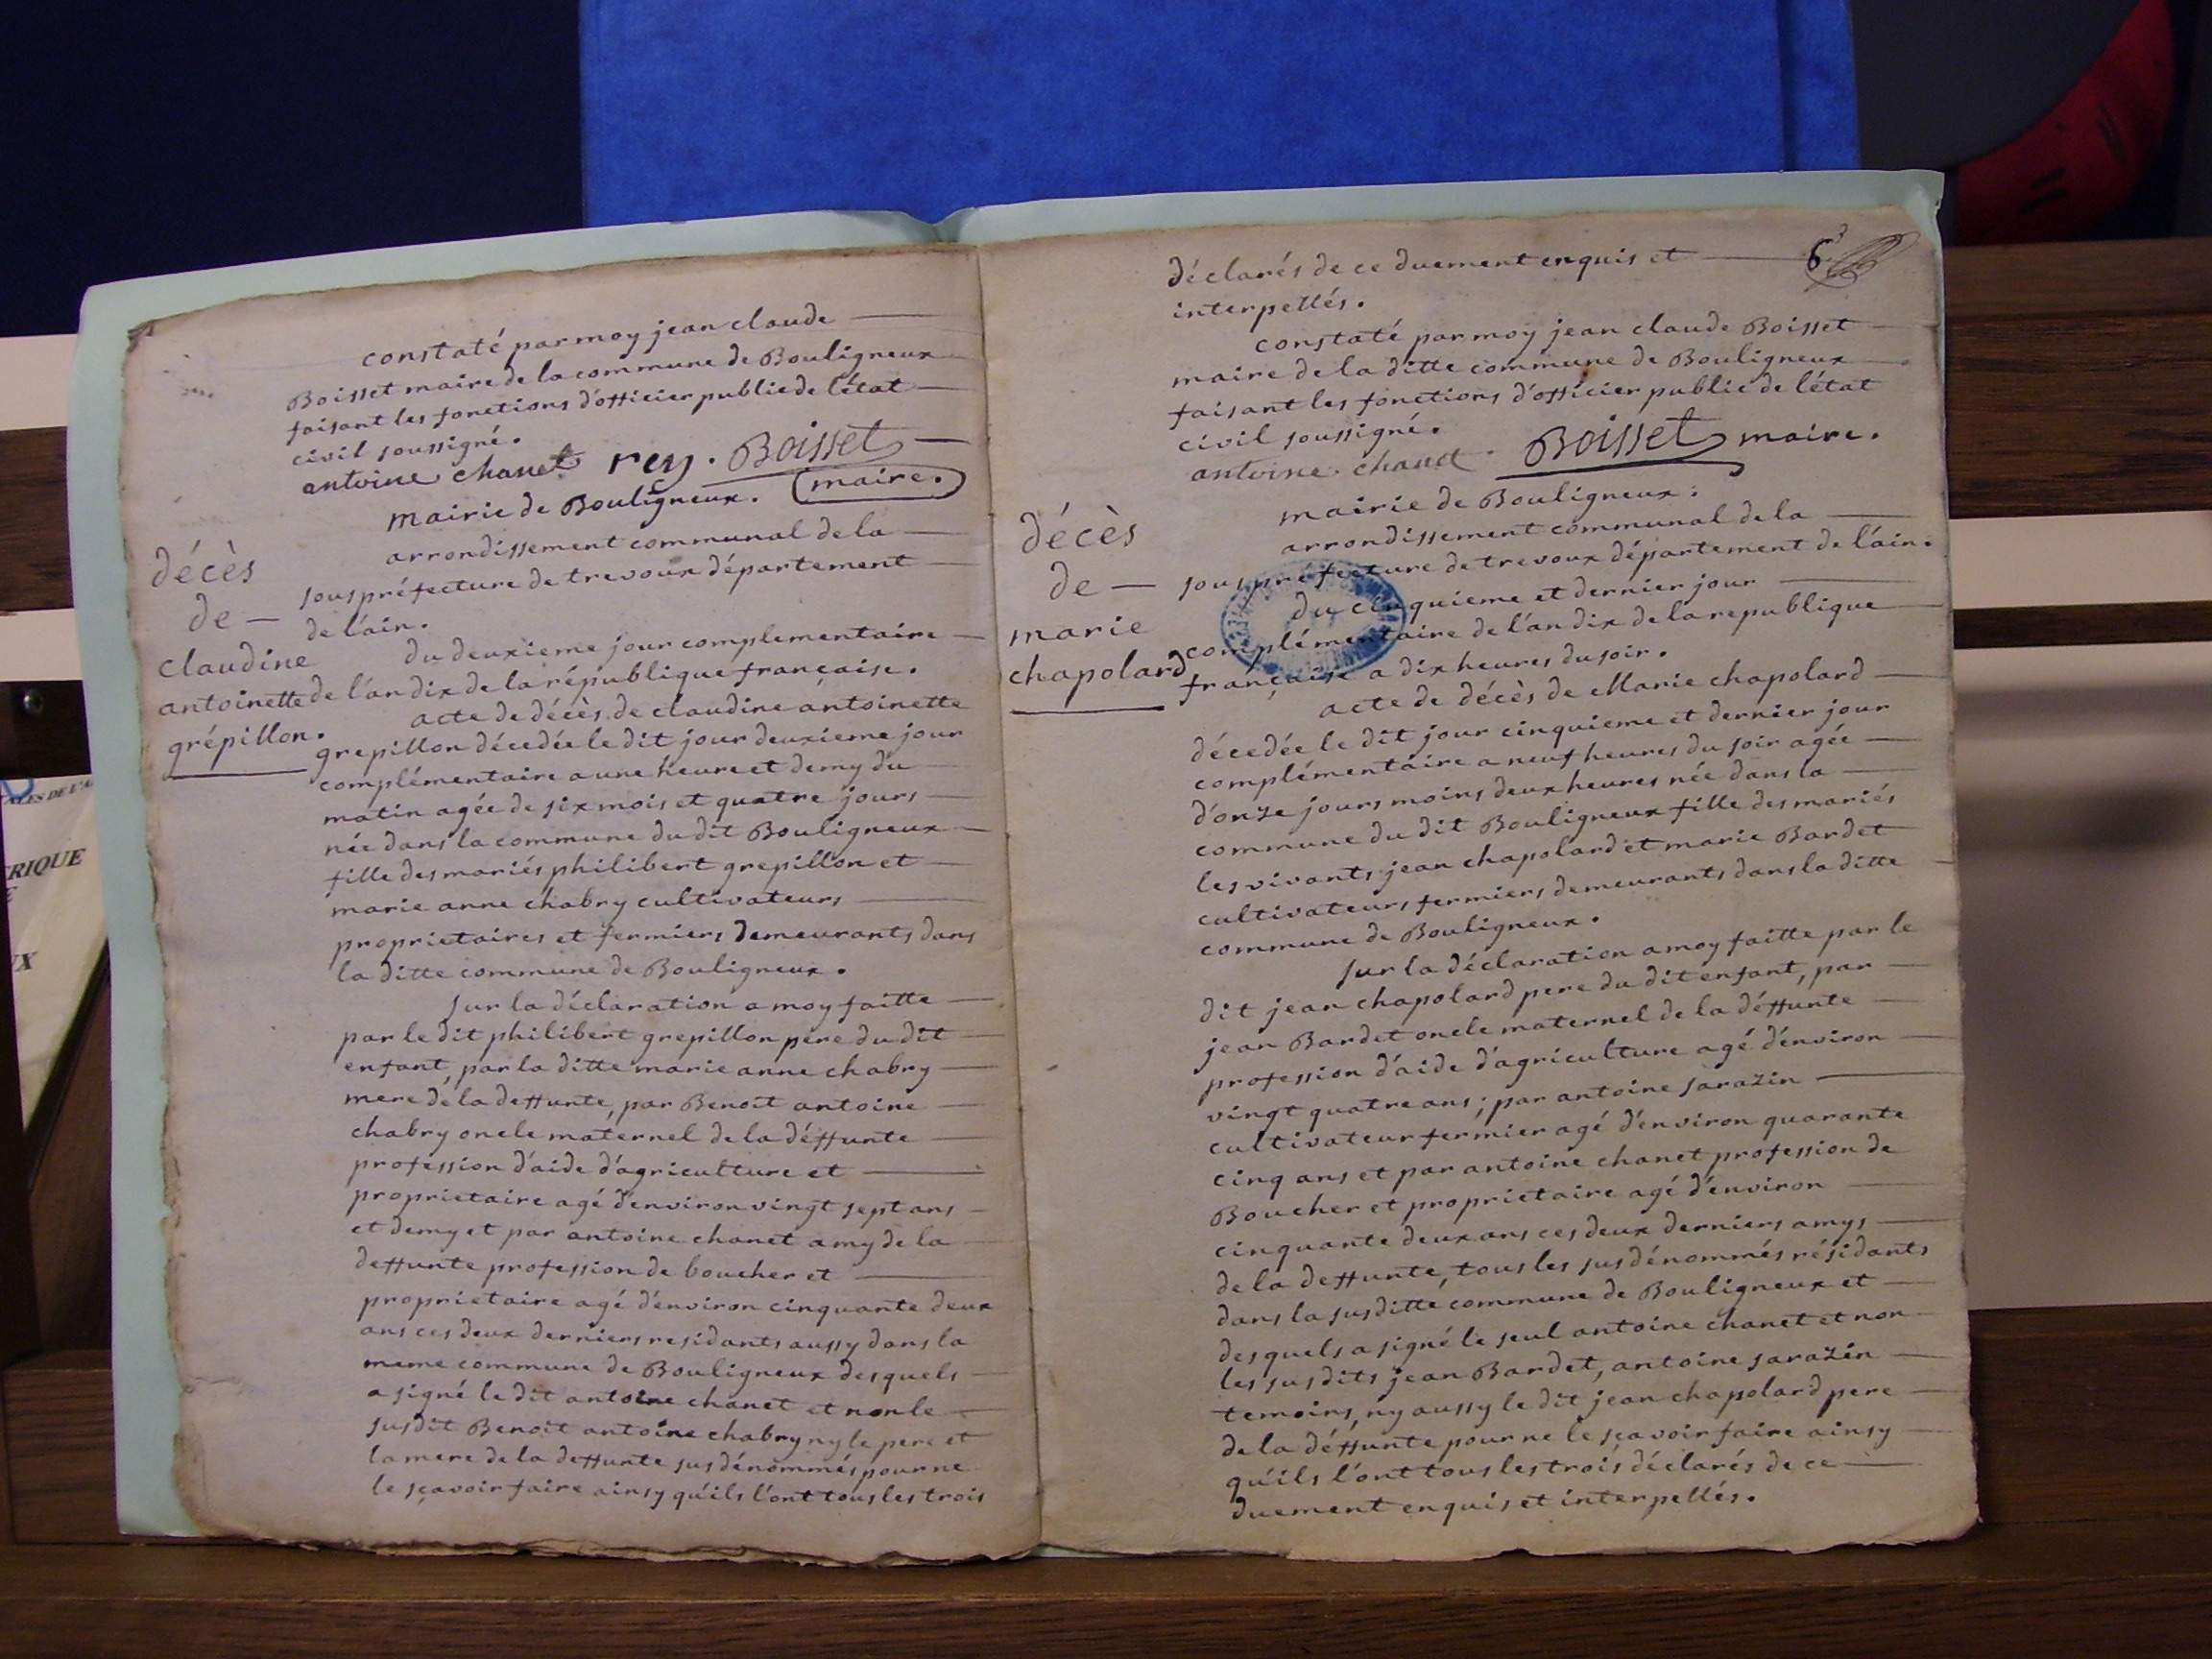 constaté par moy jean claude
Boisset maire de la commune de Bouligneux
faisant les fonctions d'officier public de l'état
civil soussigné.
antoine chanet rey. Boisset
maire.
mairie de Bouligneux.
arrondissement communal de la
sous préfecture de trevoux département
de l'ain.
décès
de
claudine
antoinette
grépillon.
du deuxieme jour complementaire
de l'an dix de la république française.
acte de décès de claudine antoinette
grepillon décedée le dit jour deuxieme jour
complémentaire a une heure et demy du
matin agée de six mois et quatre jours
née dans la commune du dit Bouligneux
fille des mariés philibert grepillon et
marie anne chabry cultivateurs
proprietaires et fermiers demeurants dans
la ditte commune de Bouligneux.
sur la déclaration a moy faitte
par le dit philibert grepillon pere du dit
enfant, par la ditte marie anne chabry
mere de la deffunte, par Benoit antoine
chabry oncle maternel de la déffunte
profession d'aide d'agriculture et
proprietaire agé d'environ vingt sept ans
et demy et par antoine chanet amy de la
deffunte profession de boucher et
proprietaire agé d'environ cinquante deux
ans ces deux derniers residants aussy dans la
meme commune de Bouligneux desquels
a signé le dit antoine chanet et non le
susdit Benoit antoine chabry ny le pere et
la mere de la deffunte susdénommés pour ne
le sçavoir faire ainsy qu'ils l'ont tous les trois
6
déclarés de ce duement enquis et
interpellés.
constaté par moy jean claude Boisset
maire de la ditte commune de Bouligneux
faisant les fonctions d'officier public de l'état
civil soussigné.
antoine chanet Boisset maire.
mairie de Bouligneux.
arrondissement communal de la
sous préfecture de trevoux département de l'ain.
décès
de
marie
chapolard
du cinquieme et dernier jour
complémentaire de l'an dix de la republique
française a dix heures du soir.
acte de décès de Marie chapolard
décedée le dit jour cinquieme et dernier jour
complémentaire a neuf heures du soir agée
d'onze jours moins deux heures née dans la
commune du dit Bouligneux fille des mariés
les vivants jean chapolard et marie Bardet
cultivateurs fermiers demeurants dans la ditte
commune de Bouligneux.
sur la déclaration a moy faitte par le
dit jean chapolard pere du dit enfant, par
jean Bardet oncle maternel de la déffunte
profession d'aide d'agriculture agé d'environ
vingt quatre ans; par antoine sarazin
cultivateur fermier agé d'environ quarante
cinq ans et par antoine chanet profession de
Boucher et proprietaire agé d'environ
cinquante deux ans ces deux derniers amys
de la deffunte, tous les susdénommés résidants
dans la susditte commune de Bouligneux et
desquels a signé le seul antoine chanet et non
les susdits jean Bardet, antoine sarazin
temoins, ny aussy le dit jean chapolard pere
de la déffunte pour ne le sçavoir faire ainsy
qu'ils l'ont tous les trois déclarés de ce
duement enquis et interpellés.